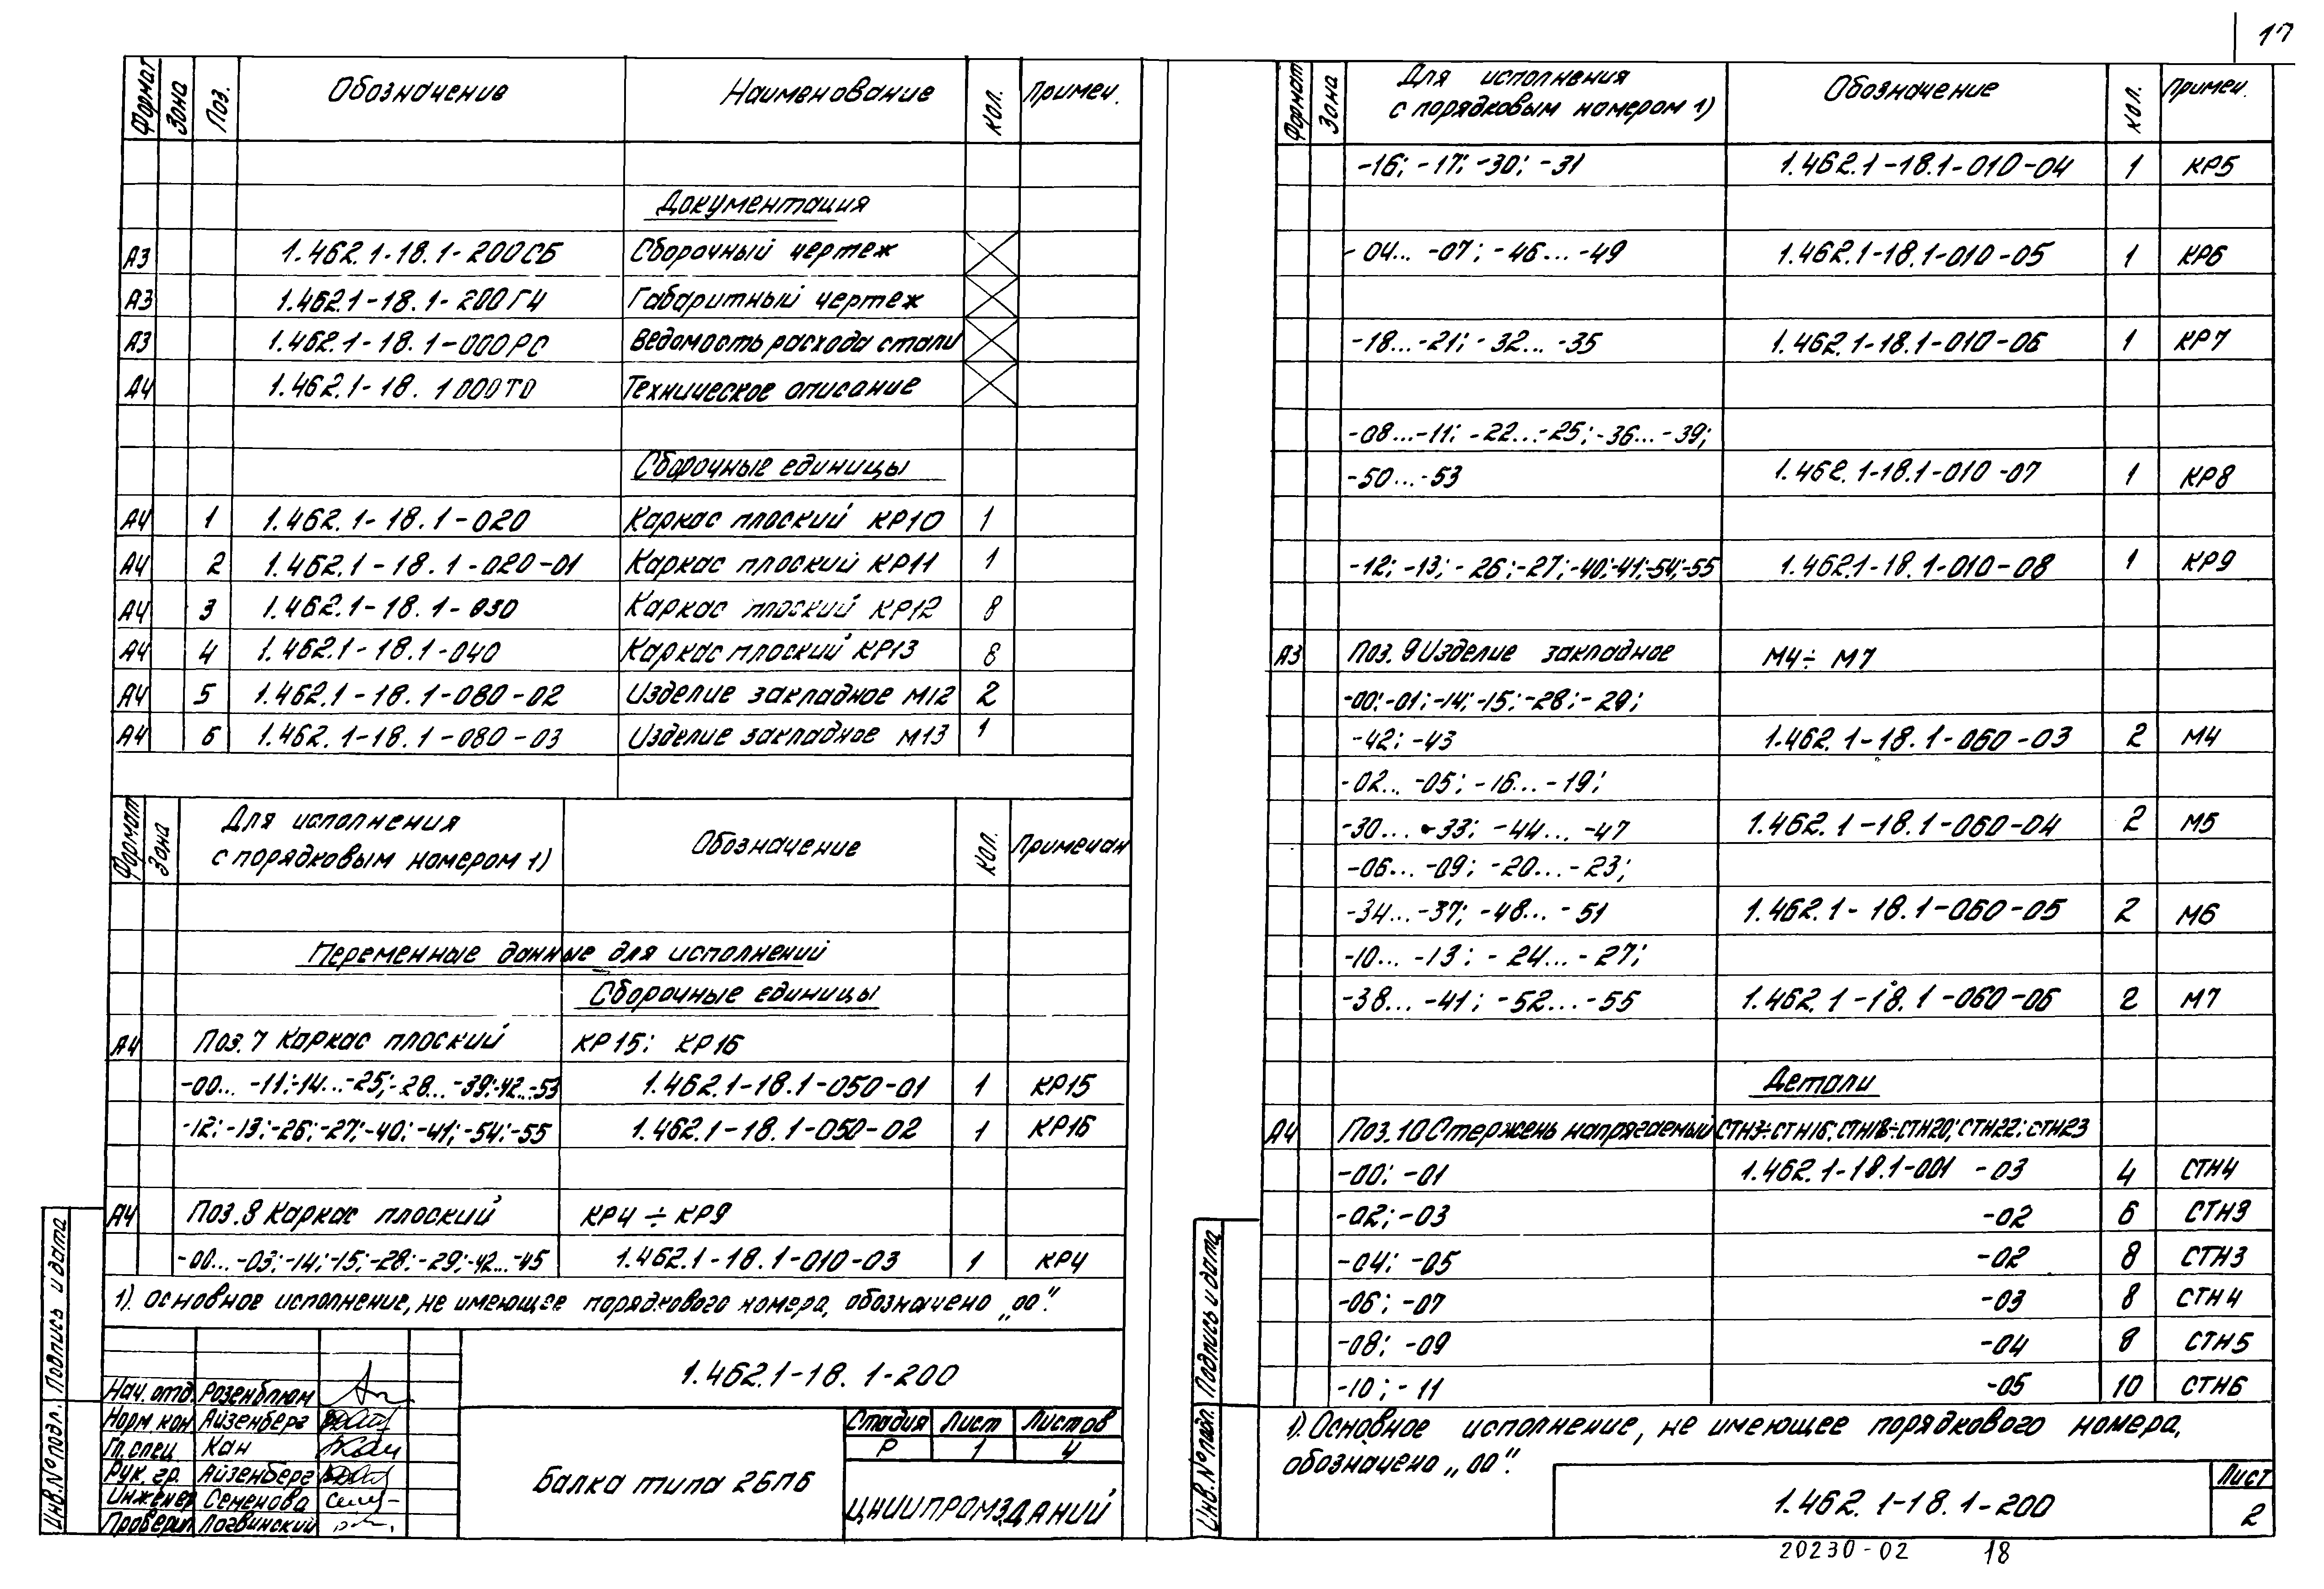 17
Формат Зона Поз. Обозначение Наименование Кол. Примеч.
Документация
А3 1.462.1-18.1-200СБ Сборочный чертеж
А3 1.462.1-18.1-200ГЧ Габаритный чертеж
А3 1.462.1-18.1-000РС Ведомость расхода стали
А4 1.462.1-18.1000ТО Техническое описание
Сборочные единицы
А4 1 1.462.1-18.1-020 Каркас плоский КР10 1
А4 2 1.462.1-18.1-020-01 Каркас плоский КР11 1
А4 3 1.462.1-18.1-030 Каркас плоский КР12 8
А4 4 1.462.1-18.1-040 Каркас плоский КР13 8
А4 5 1.462.1-18.1-080-02 Изделие закладное М12 2
А4 6 1.462.1-18.1-080-03 Изделие закладное М13 1
Формат Зона Для исполнения с порядковым номером 1) Обозначение Кол. Примечан
Переменные данные для исполнений
Сборочные единицы
А4 Поз. 7 Каркас плоский КР15; КР16
-00... -11; -14... -25; -28... -39; -42...-53 1.462.1-18.1-050-01 1 КР15
-12; -13; -26; -27; -40; -41; -54; -55 1.462.1-18.1-050-02 1 КР16
А4 Поз. 8 Каркас плоский КР4 ÷ КР9
-00... -03; -14; -15; -28; -29; -42... -45 1.462.1-18.1-010-03 1 КР4
1). Основное исполнение, не имеющее порядкового номера, обозначено „00".
1.462.1-18.1-200
Нач. отд. Розенблюм
Норм. кон Айзенберг
Гл. спец Кан
Рук. гр. Айзенберг
Инженер Семенова
Проверил Логвинский
Балка типа 2БП6
Стадия Лист Листов
Р 1 4
ЦНИИПРОМЗДАНИЙ
Инв. № подл. Подпись и дата
Формат Зона Для исполнения с порядковым номером 1) Обозначение Кол. Примеч.
-16; -17; -30; -31 1.462.1-18.1-010-04 1 КР5
-04... -07; -46... -49 1.462.1-18.1-010-05 1 КР6
-18... -21; -32... -35 1.462.1-18.1-010-06 1 КР7
-08...-11; -22...-25; -36... -39;
-50...-53 1.462.1-18.1-010-07 1 КР8
-12; -13; -26; -27; -40; -41; -54; -55 1.462.1-18.1-010-08 1 КР9
А3 Поз. 9 Изделие закладное М4 ÷ М7
-00; -01; -14; -15; -28; -29;
-42; -43 1.462.1-18.1-060-03 2 М4
-02... -05; -16... -19;
-30... -33; -44... -47 1.462.1-18.1-060-04 2 М5
-06... -09; -20... -23;
-34... -37; -48... -51 1.462.1-18.1-060-05 2 М6
-10... -13; -24... -27;
-38... -41; -52... -55 1.462.1-18.1-060-06 2 М7
Детали
А4 Поз. 10 Стержень напрягаемый СТН3÷СТН16; СТН18÷СТН20; СТН22; СТН23
-00; -01 1.462.1-18.1-001 -03 4 СТН4
-02; -03 -02 6 СТН3
-04; -05 -02 8 СТН3
-06; -07 -03 8 СТН4
-08; -09 -04 8 СТН5
-10; -11 -05 10 СТН6
1). Основное исполнение, не имеющее порядкового номера,
обозначено „00".
1.462.1-18.1-200
Лист
2
Инв. № подл. Подпись и дата
20230-02 18